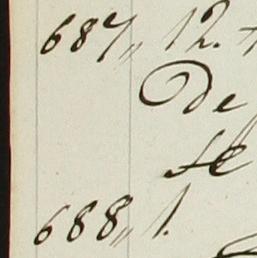 687,, 12.
De
se
688,, 1.